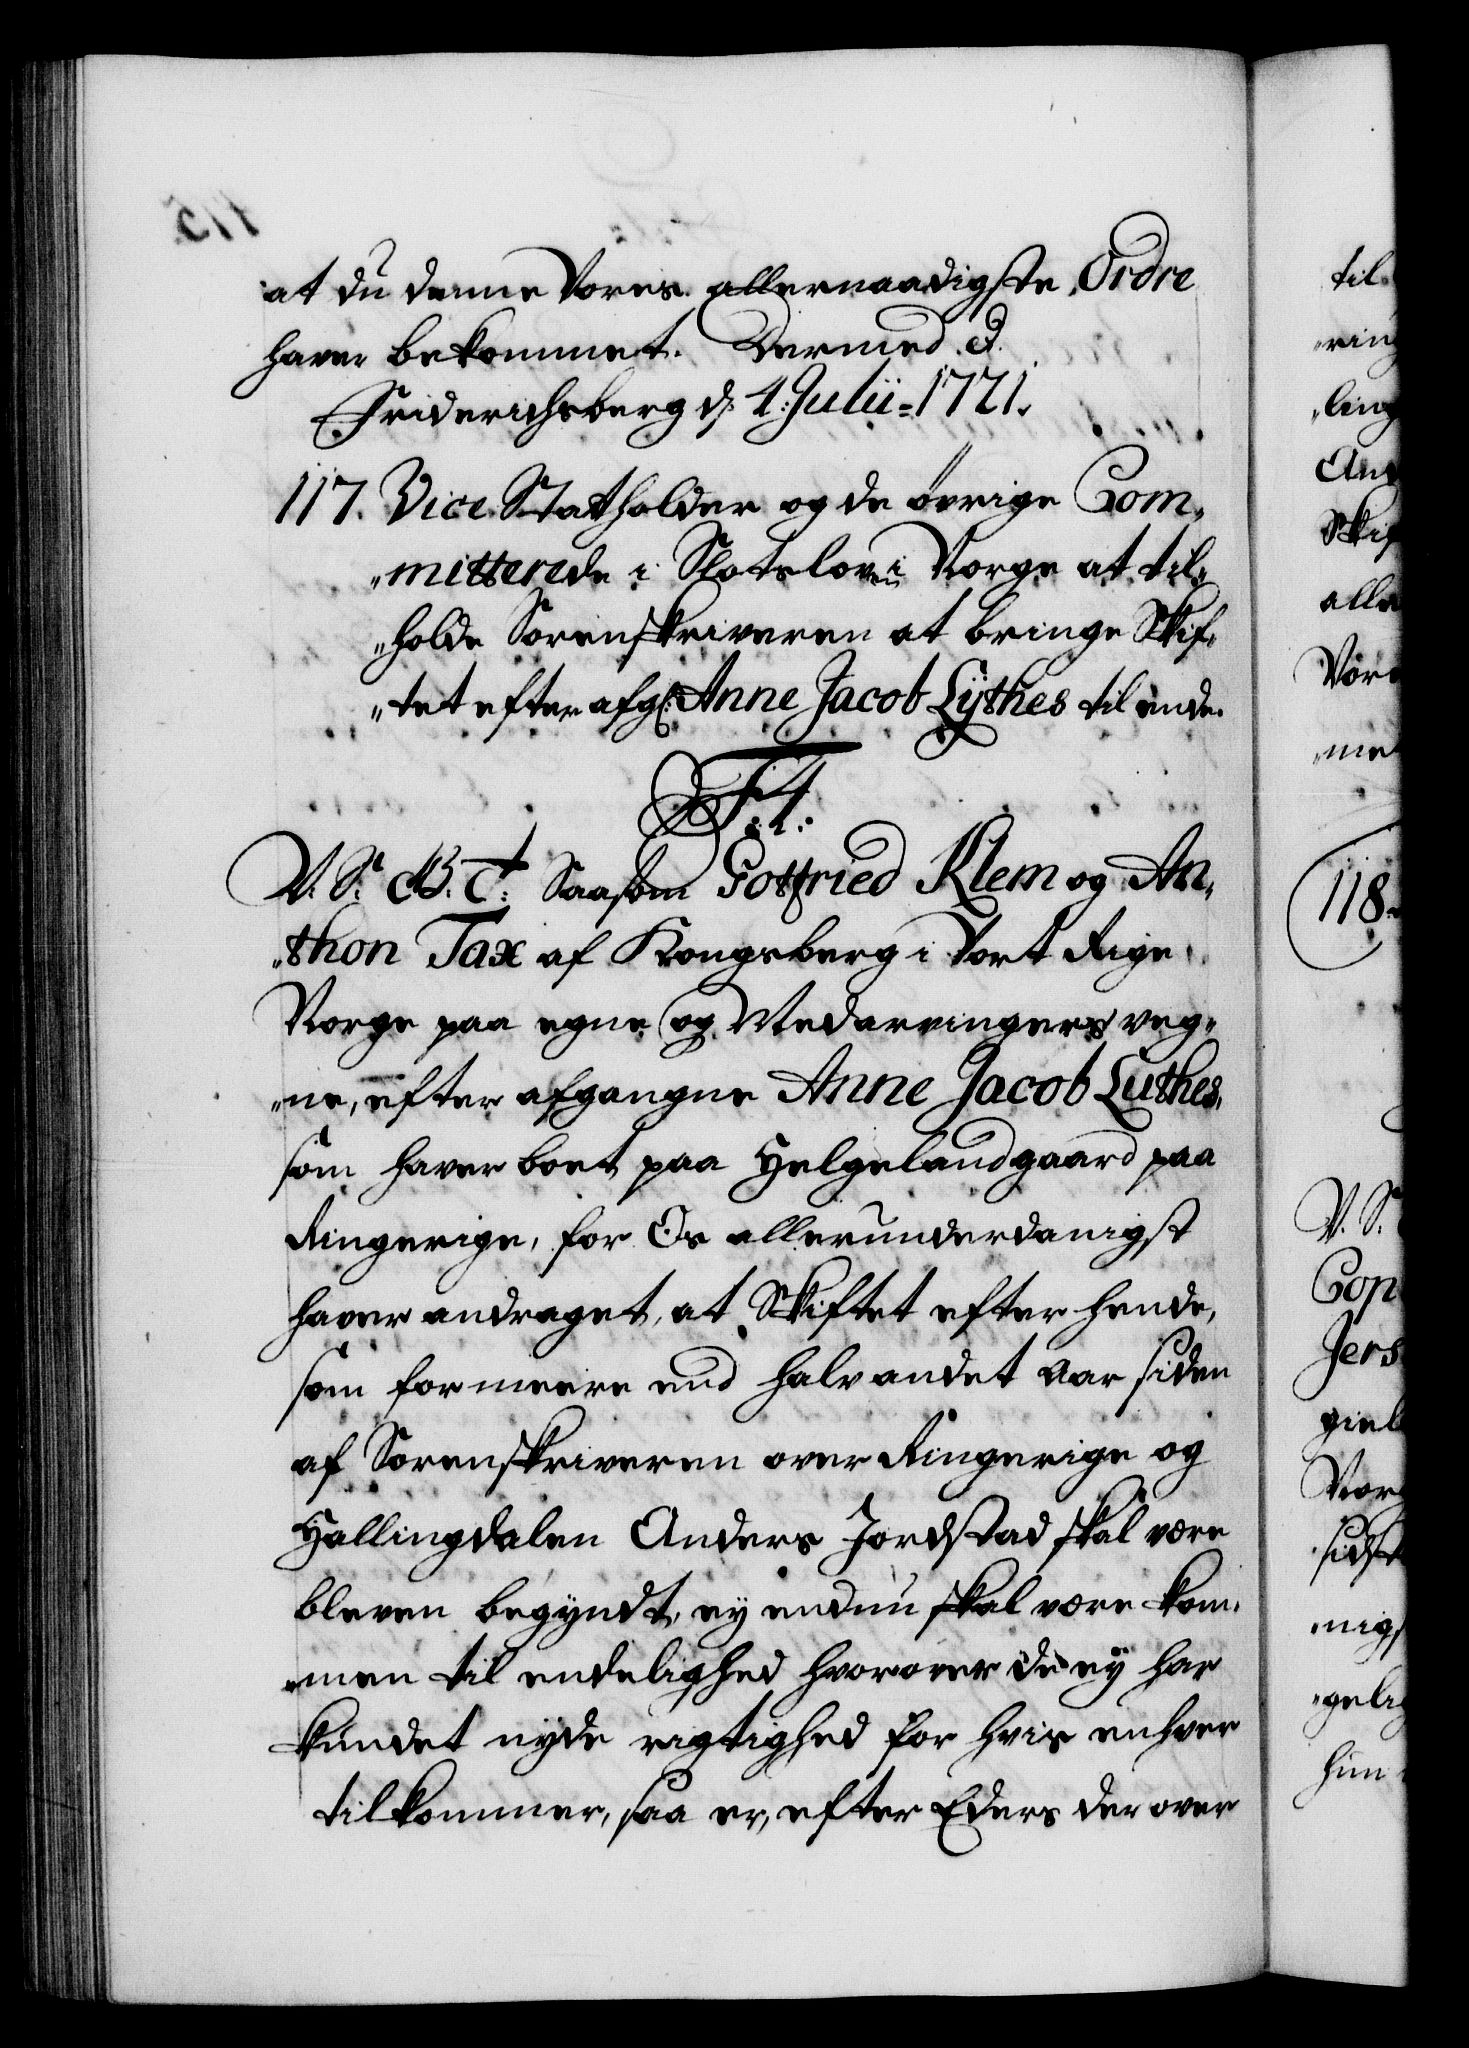 at du denne Vores allernaadigste Ordre
haver bekommet. Dermed &.
Friderichsberg d. 4. Julii 1721.
117. Vice Statholder og de övrige Com„
„mitterede i Slotsloven i Norge at til„
„holde Sorenskriveren at bringe Skif„
„tet efter afg: Anne Jacob Lÿthes til ende.
F: 4:
V. S. G. B. T. Saasom Gotfried Klem og An„
„thon Tax af Kongsberg i Vort Rige
Norge paa egne og Medarvingers veg„
„ne, efter afgangne Anne Jacob Luthes,
som haver boet paa Helgelandgaard paa
Ringerige, for Os allerunderdanigst
haver andraget, at Skiftet efter hende,
som for meere end halvandet Aar siden
af Sorenskriveren over Ringerige og
Hallingdalen Anders Jordstad skal være
bleven begyndt, ey endnu skal være kom„
„men til endelighed hvorover de eÿ har
kundet nyde rigtighed for hvis enhver
tilkommer, saa er, efter Eders der over
til
„ring
„ling
Ang
Skif
alle
Vore
„me
118.
V. S.
Cop
Jers
giel
Norg
sidst
„nigs
„gelig
him